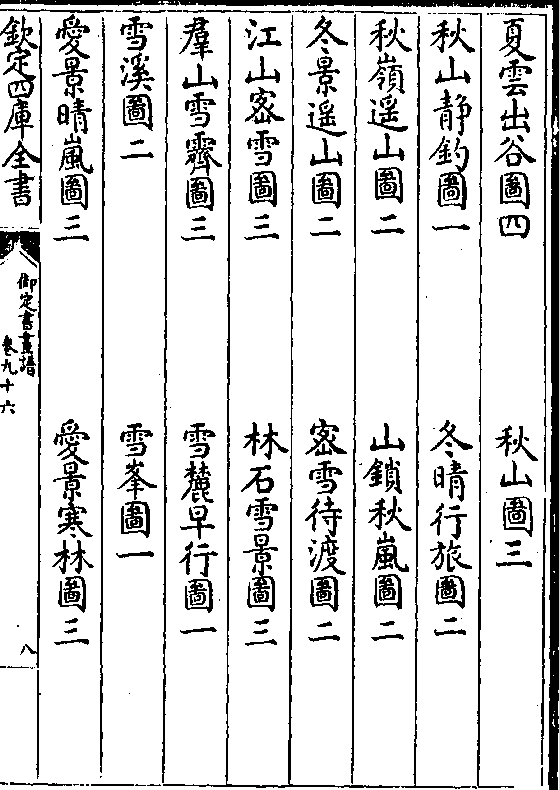 夏雲出谷圖四 秋山圖三
秋山靜釣圖一 冬晴行旅圖二
秋嶺遥山圖二 山鎖秋嵐圖二
冬景遥山圖二 宻雪待渡圖二
江山宻雪圖三 林石雪景圖三
羣山雪霽圖三 雪麓早行圖一
雪溪圖二 雪峯圖一
愛景晴嵐圖三 愛景寒林圖三
欽定四庫全書
御定書畫譜
卷九十六
八